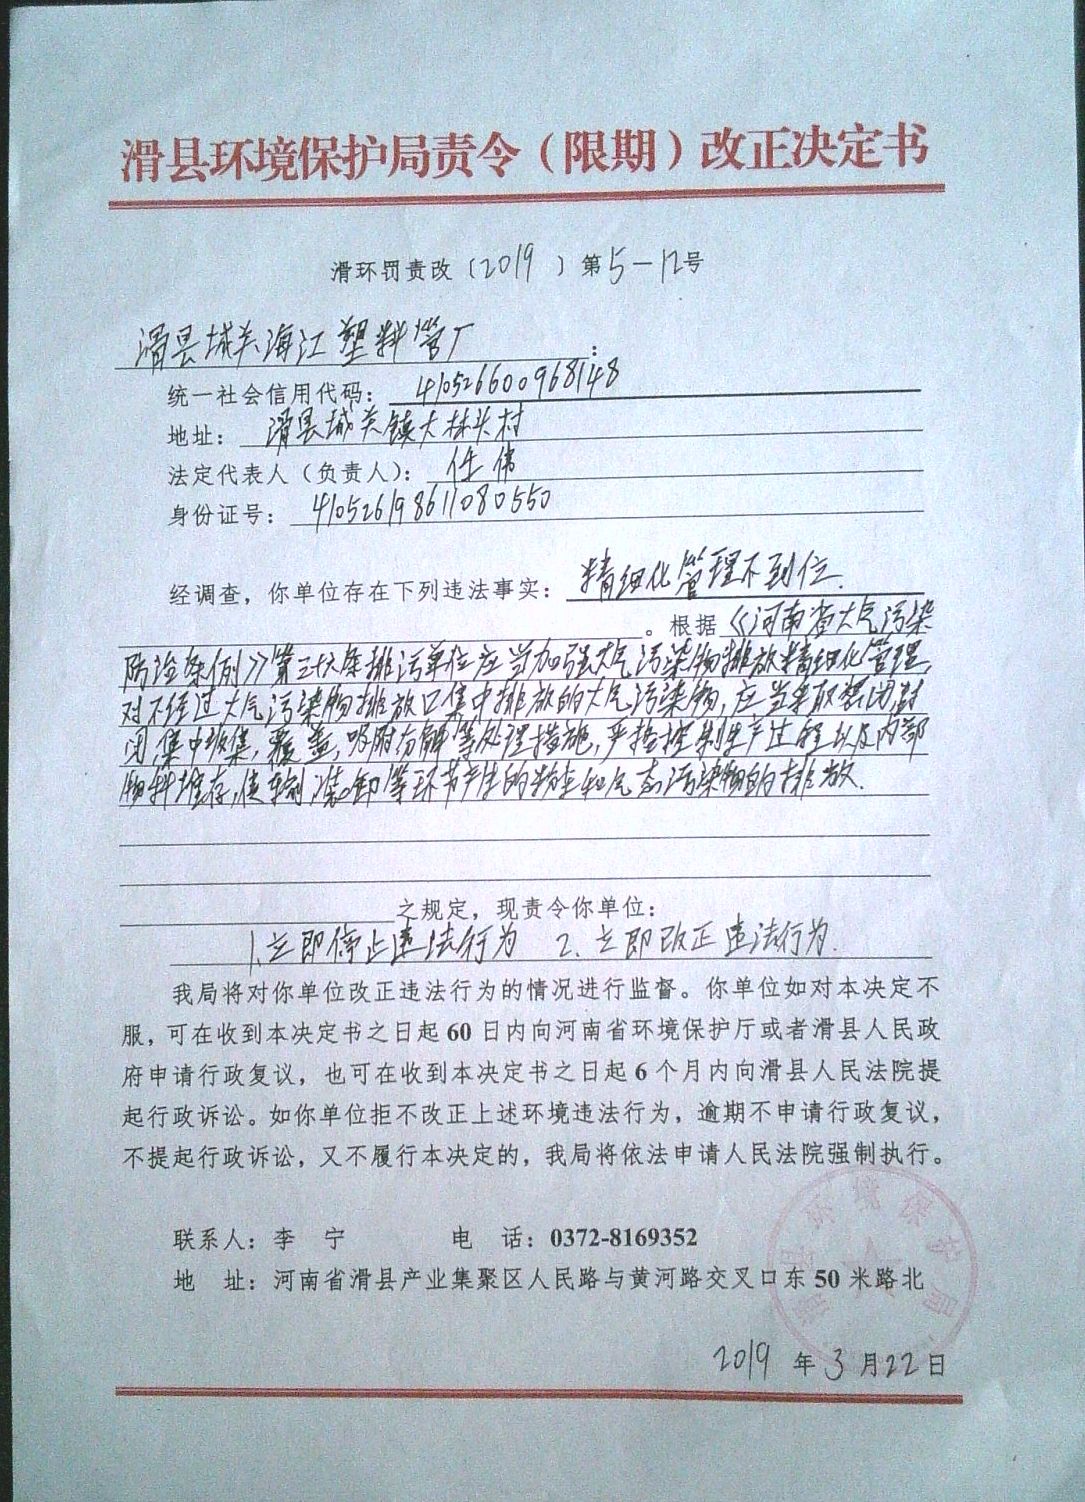 滑县环境保护局责令（限期）改正决定书
滑环罚责改〔2019〕第5-12号
滑县城关海江塑料管厂：
统一社会信用代码：410526600968148
地址：滑县城关镇大林头村
法定代表人（负责人）：任伟
身份证号：410526198611080550
经调查，你单位存在下列违法事实：精细化管理不到位.
。根据《河南省大气污染
防治条例》第三十六条排污单位应当加强大气污染物排放精细化管理,
对不经过大气污染物排放口集中排放的大气污染物,应当采取密闭,封
闭,集中收集,覆盖,吸附分解等处理措施,严格控制生产过程以及内部
物料堆存,传输,装卸等环节产生的粉尘和气态污染物的排放.
之规定，现责令你单位：
1.立即停止违法行为 2.立即改正违法行为.
我局将对你单位改正违法行为的情况进行监督。你单位如对本决定不
服，可在收到本决定书之日起60日内向河南省环境保护厅或者滑县人民政
府申请行政复议，也可在收到本决定书之日起6个月内向滑县人民法院提
起行政诉讼。如你单位拒不改正上述环境违法行为，逾期不申请行政复议，
不提起行政诉讼，又不履行本决定的，我局将依法申请人民法院强制执行。
联系人：李 宁 电 话：0372-8169352
地 址：河南省滑县产业集聚区人民路与黄河路交叉口东50米路北
滑县环境保护局
2019年3月22日